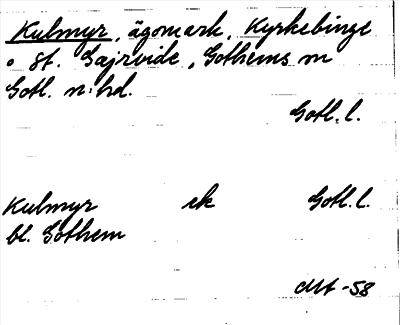 Kulmyr, ägomark, Kyrkebinge
o st. Gajrvide, Gothems sn
Gotl. n:hd.
Gotl. l.
Kulmyr ek Gotl. l.
bl. Gothem
-58